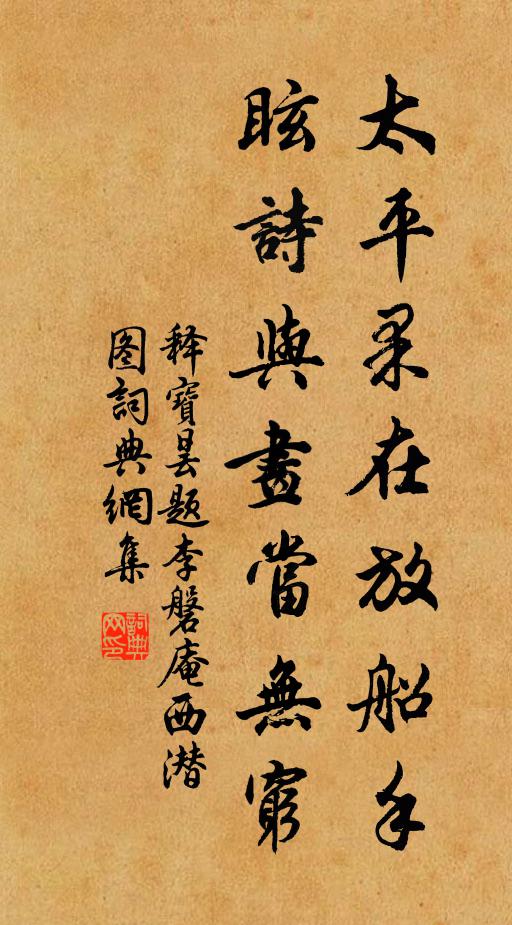 太平果在放船手
眩詩與畫當無窮
释寶昙题李磐庵西潜
图詞典網集
詞典网印